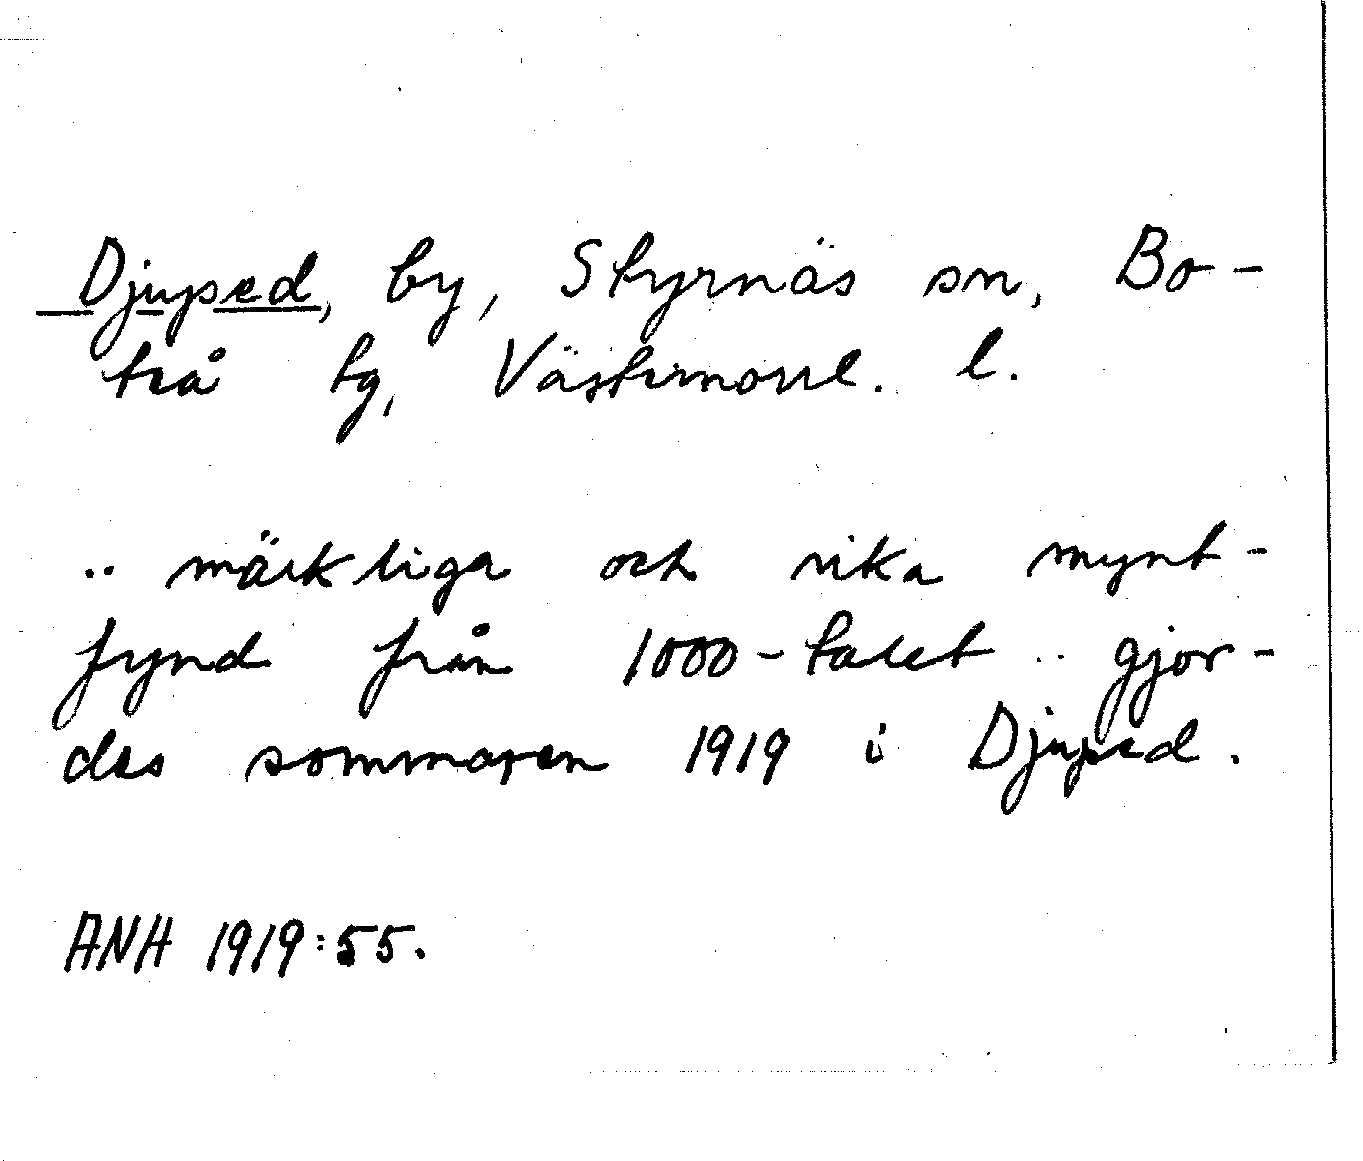 Djupsed, by, Styrnäs sn, Bo-
teå tg, Västernorrl. l.
.. märkliga och rika mynt-
fynd från 1000-talet .. gjor-
des sommaren 1919 i Djupsed.
ANH 1919:55.